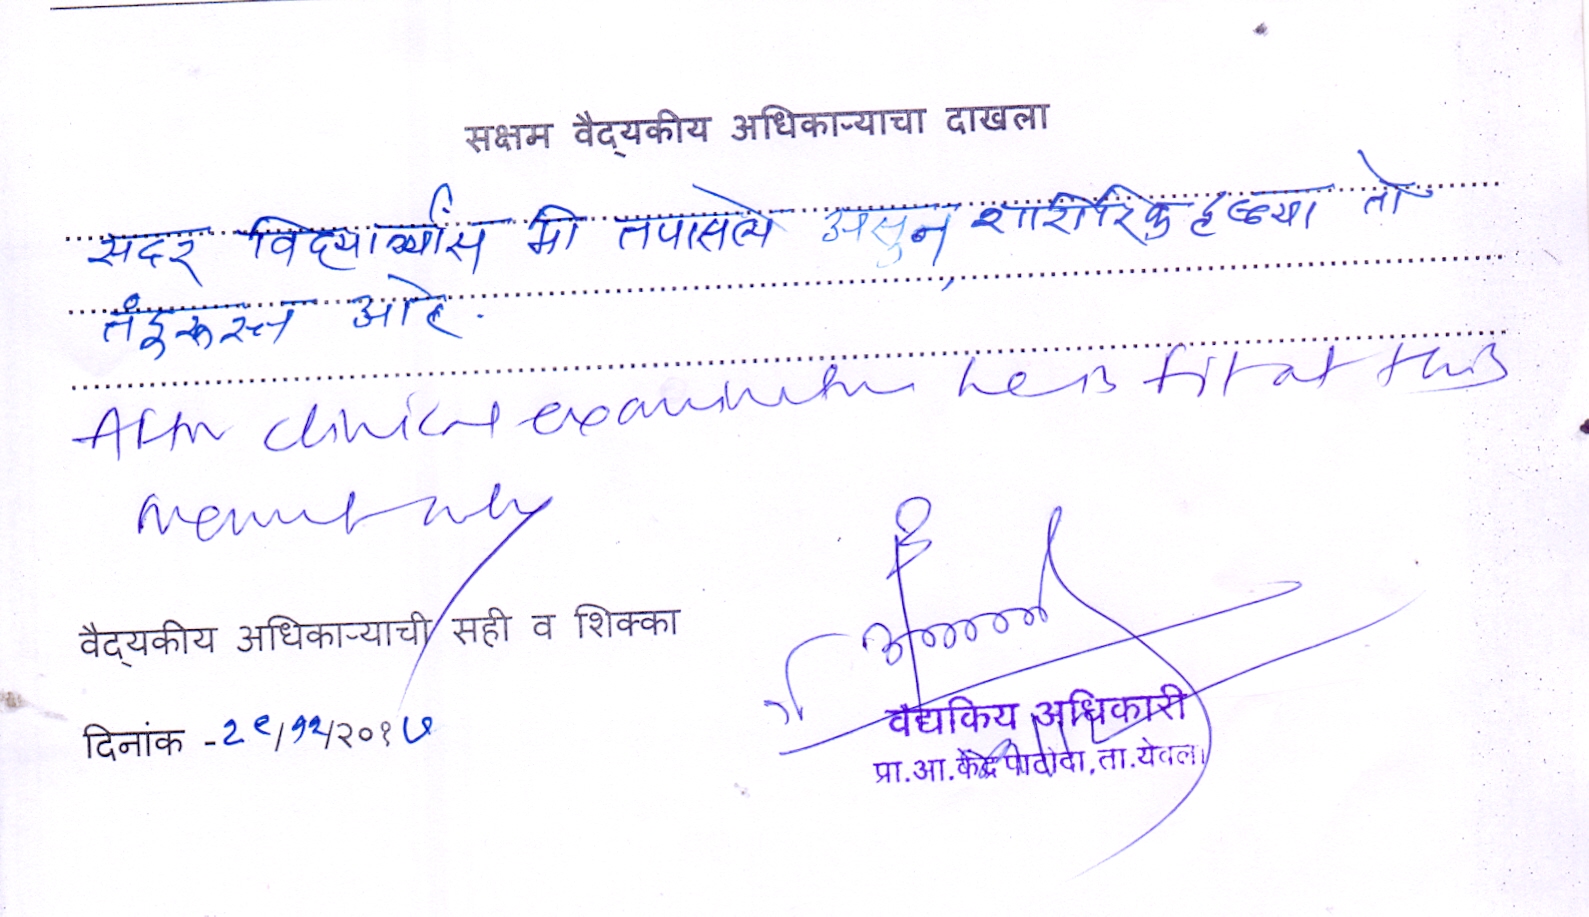 सक्षम वैद्यकीय अधिकाऱ्याचा दाखला
सदर विद्यार्थ्यास मी तपासले असुन, शारीरिक दृष्ट्या तो
तंदुरुस्त आहे.
After clinical examination he is fit at this
moment only
वैद्यकीय अधिकाऱ्याची सही व शिक्का
दिनांक - २९/१२/२०१७
वैद्यकिय अधिकारी
प्रा.आ.केंद्र पाटोदा, ता.येवला